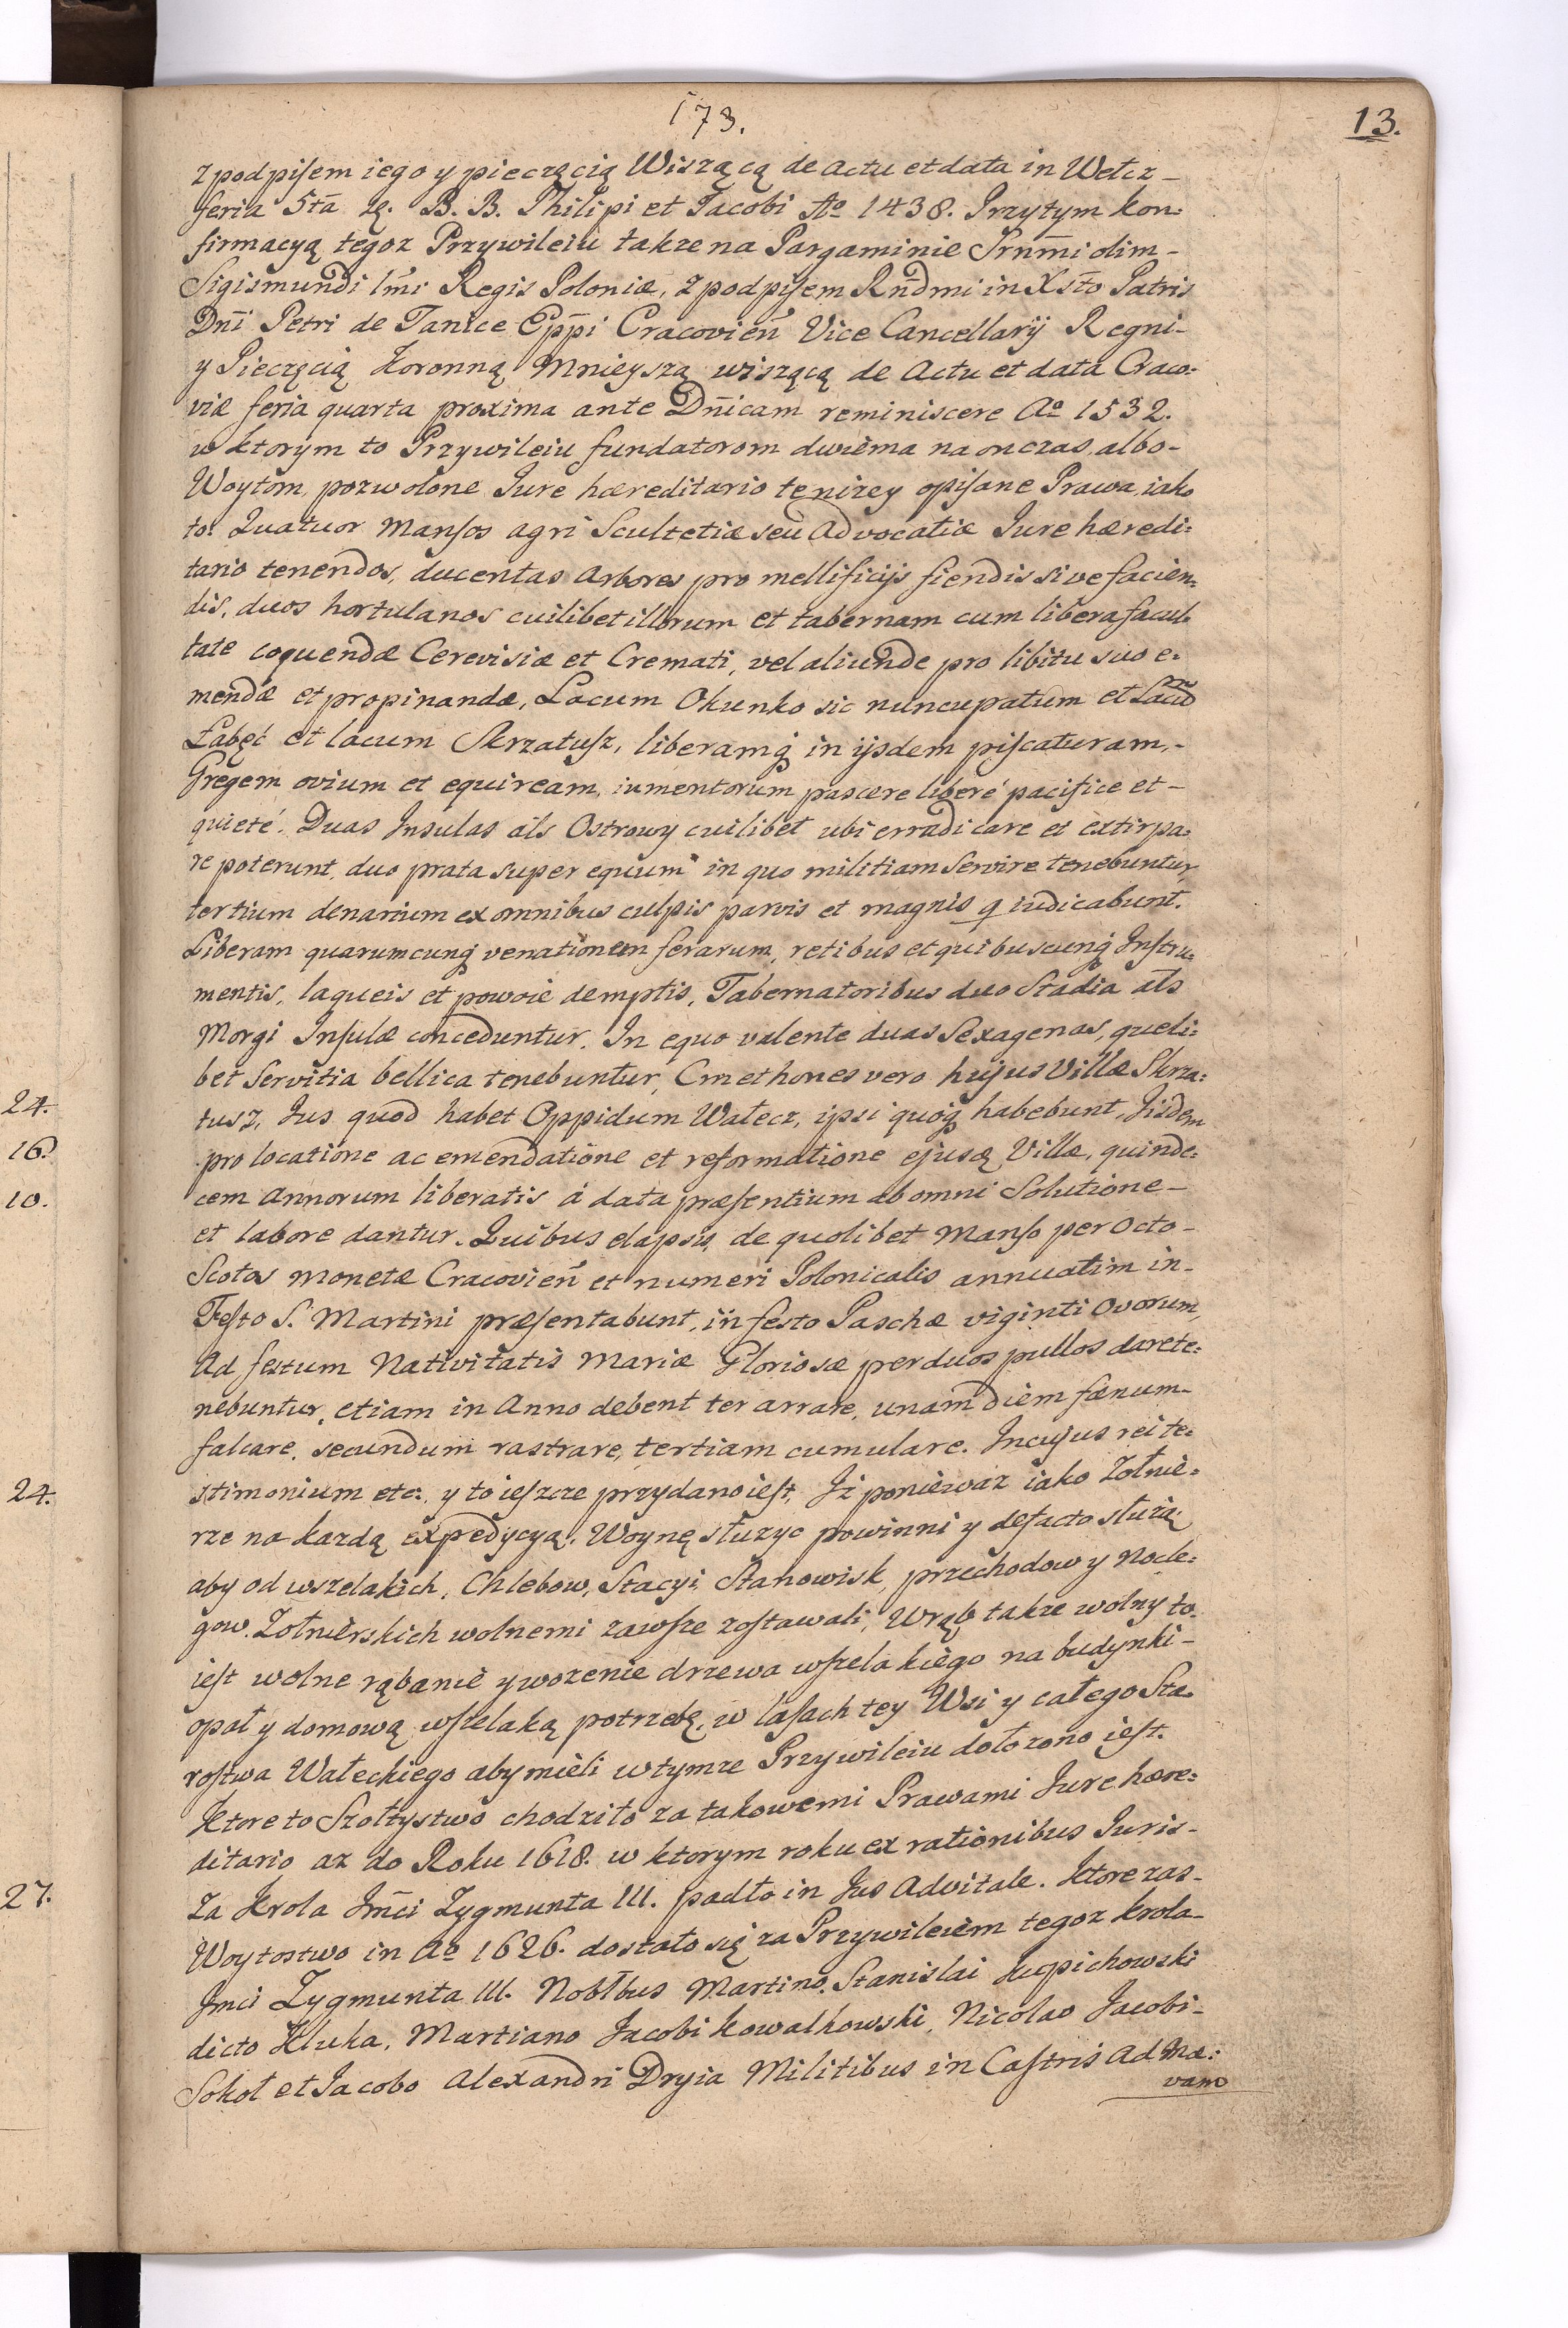 173.
13.
z podpisem iego y pieczęcią Wiszącą de actu et data in Wełcz -
feria 5ta B. B. Philipi et Jacobi Ao 1438. Przytym kon:
firmacyą tegoz Przywileiu takze na Pargaminie Srnmi olim -
Sigismundi Imi Regis Poloniæ, z podpisem Rndmi in Xsto Patris
Dni Petri de Tanice Eppi Cracovien Vice Cancellarij Regni -
y Pieczęcią Koronną Mnieyszą wiszącą de Actu et data Craco:
viæ feria quarta proxima ante Dnicam reminiscere Ao 1532.
w ktorym to Przywileiu fundatorom dwiema na onczas albo -
Woytom, pozwolone Jure hæreditario te nizey opisane Prawa, iako
to: Quatuor Mansos agri Scultetiæ seu Advocatiæ Jure hæredi:
tario tenendos, ducentas Arbores pro mellificijs fiendis sive facien:
dis, duos hortulanos cuilibet illorum et tabernam cum libera facul:
tate coquendæ Cerevisiæ et Cremati, vel aliunde pro libitu suo e:
mendæ et propinandæ, Lacum Okunko sic nuncupatum et Lacum
Łabęć et lacum Skrzatusz, liberamq in ijsdem piscaturam, -
Gregem ovium et equiream, iumentorum pascere liberé pacifice et -
quieté. Duas Insulas als Ostrowy cuilibet ubi erradicare et extirpa:
re poterunt, duo prata super equum in quo militiam servire tenebuntur
tertium denarium ex omnibus culpis parvis et magnis q iudicabunt.
Liberam quarumcunq venationem ferarum, retibus et quibuscunq Instru:
mentis, laqueis et powoie demptis, Tabernatoribus duo Stadia als
Morgi Insulæ conceduntur. In equo valente duas Sexagenas, queli:
bet Servitia bellica tenebuntur, Cmethones vero hujus Villæ Skrza:
tusz, Jus quod habet Oppidum Wałecz, ipsi quoq habebunt, Iisdem
pro locatione ac emendatione et reformatione ejusq Villæ, quinde:
cem Annorum liberatis á data præsentium ab omni Solutione -
et labore dantur. Quibus elapsis, de quolibet Manso per octo -
Scotos monetæ Cracovien et numeri Polonicalis annuatim in -
Festo S. Martini præsentabunt, in festo Paschæ viginti Ovorum,
Ad festum Nativitatis Mariæ Gloriosæ per duos pullos dare te:
nebuntur, etiam in Anno debent ter arrare, unam diem fænum -
falcare, secundum rastrare, tertiam cumulare. In cujus rei te:
stimonium etc: y to ieszcze przydano iest, Iż poniewaz iako Zołnie:
rze na kazdą expedycyą, Woynę słuzyc powinni y defacto słuzą,
aby od wszelakich, Chlebow, Stacyi, Stanowisk, przechodow y Nocle:
gow. Zołnierskich wolnemi zawsze zostawali, Wrąb takze wolny to
iest wolne rąbanie y wozenie drzewa wszelakiego na budynki -
opał y domową wszelaką potrzebę, w lasach tey Wsi y całego Sta:
rostwa Wałeckiego aby mieli w tymze Przywileiu dołozono iest.
Ktore to Szołtystwo chodziło za takowemi Prawami Jure hære:
ditario az do Roku 1618. w ktorym roku ex rationibus Juris -
Za Krola Jmci Zygmunta III. padło in Jus Advitale. Ktore zas -
Woytostwo in Ao 1626. dostało się za Przywileiem tegoz krola -
Jmci Zygmunta III. Noblbus Martino, Stanislai Kupichowski
dicto Kluka, Martiano Jacobi Kowalkowski, Nicolao Jacobi -
Sokoł et Jacobo Alexandri Dryia Militibus in Castris Ad Mæ:
vam
24.
16.
10.
24.
27.